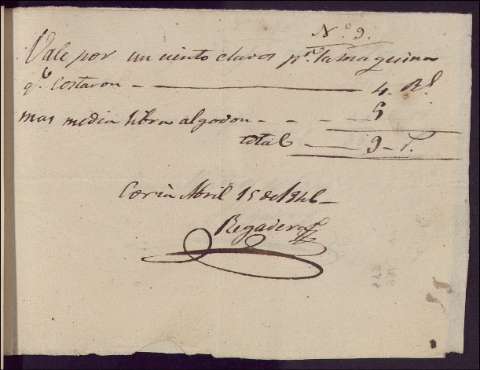 Nº 9.
Vale por un ciento clavos pª la maquina
qᵉ Costaron 4. Rˢ
mas media libra algodon 5
total 9
Coria Abril 15 de 1846
Regadera